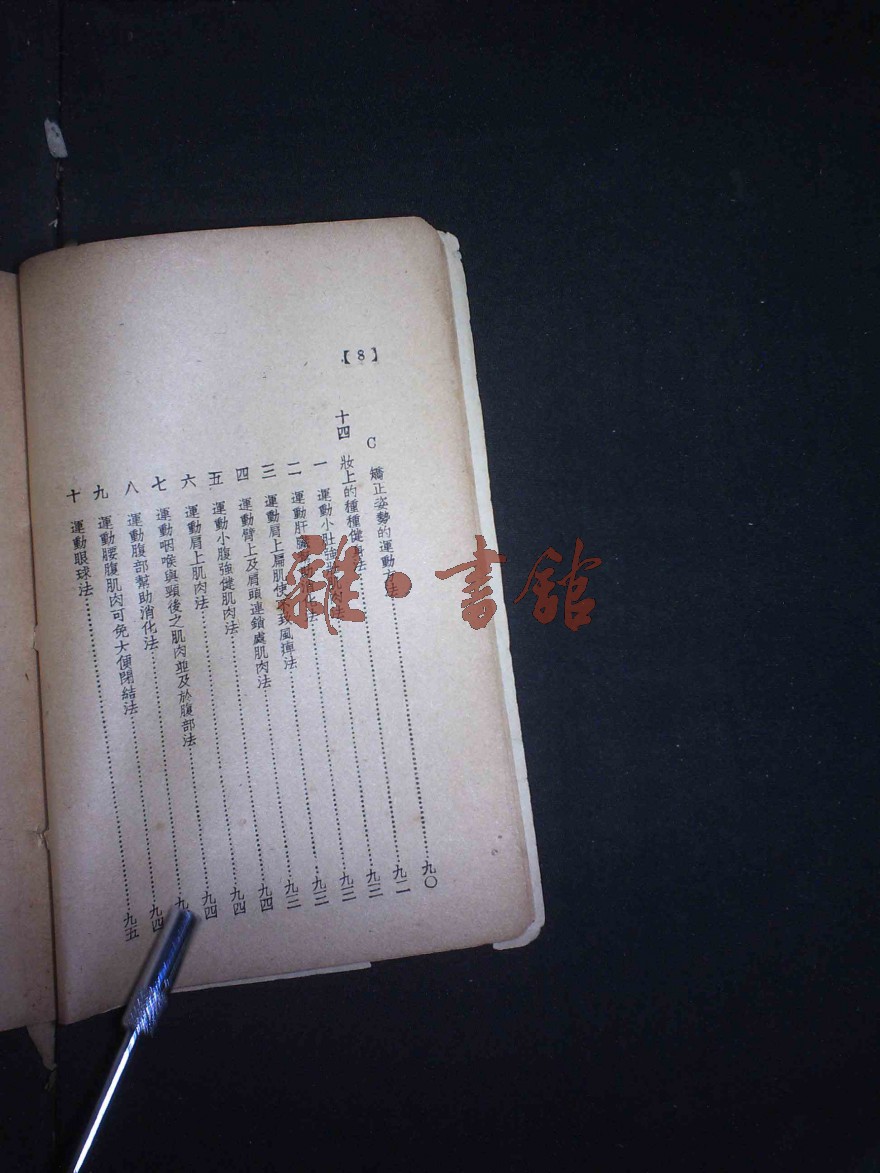 【8】
C 矯正姿勢的運動方法……九〇
十四 妝上的種種健身法……九二
一 運動小肚強肌肉法……九三
二 運動肝臟消化法……九三
三 運動肩上扁肌使不致風痺法……九三
四 運動臂上及肩頭連鎖處肌肉法……九三
五 運動小腹強健肌肉法……九四
六 運動肩上肌肉法……九四
七 運動咽喉與頸後之肌肉並及於腹部法……九四
八 運動腹部幫助消化法……九
九 運動腰腹肌肉可免大便閉結法……九四
十 運動眼球法……九五
雜·書館